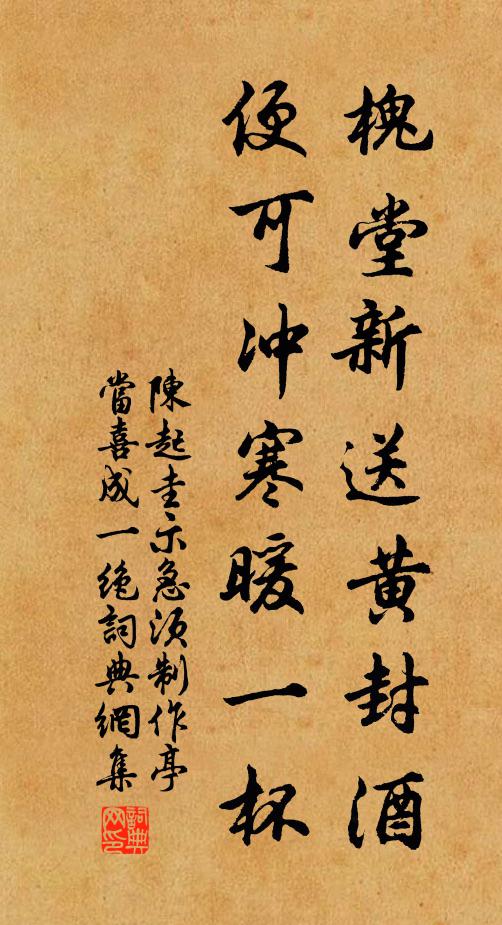 槐堂新送黄封酒
便可冲寒暖一杯
陳起圭示急須制作亭
當喜成一絶詞典網集
詞典網印